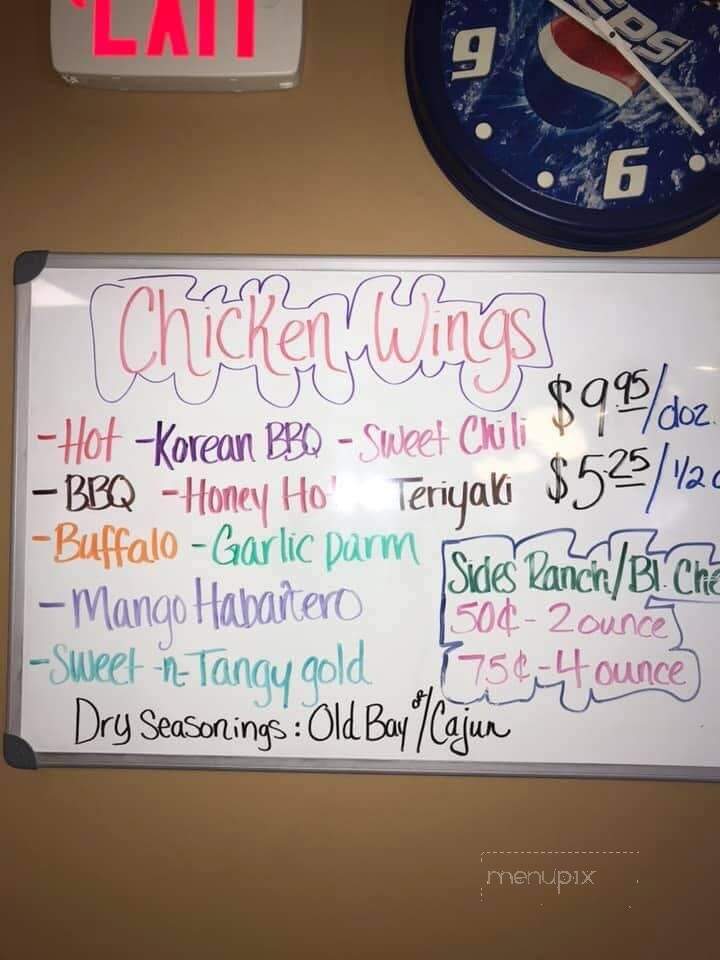 EXIT
PEPSI
9
6
Chicken Wings
-Hot -Korean BBQ -Sweet Chili $9.95/doz.
-BBQ -Honey Ho Teriyaki $5.25/1/2
-Buffalo -Garlic parm
-Mango Habañero
-Sweet -n- Tangy gold
Sides Ranch/Bl. Che
50¢ - 2 ounce
75¢ - 4 ounce
Dry Seasonings: Old Bay or/Cajun
menupix